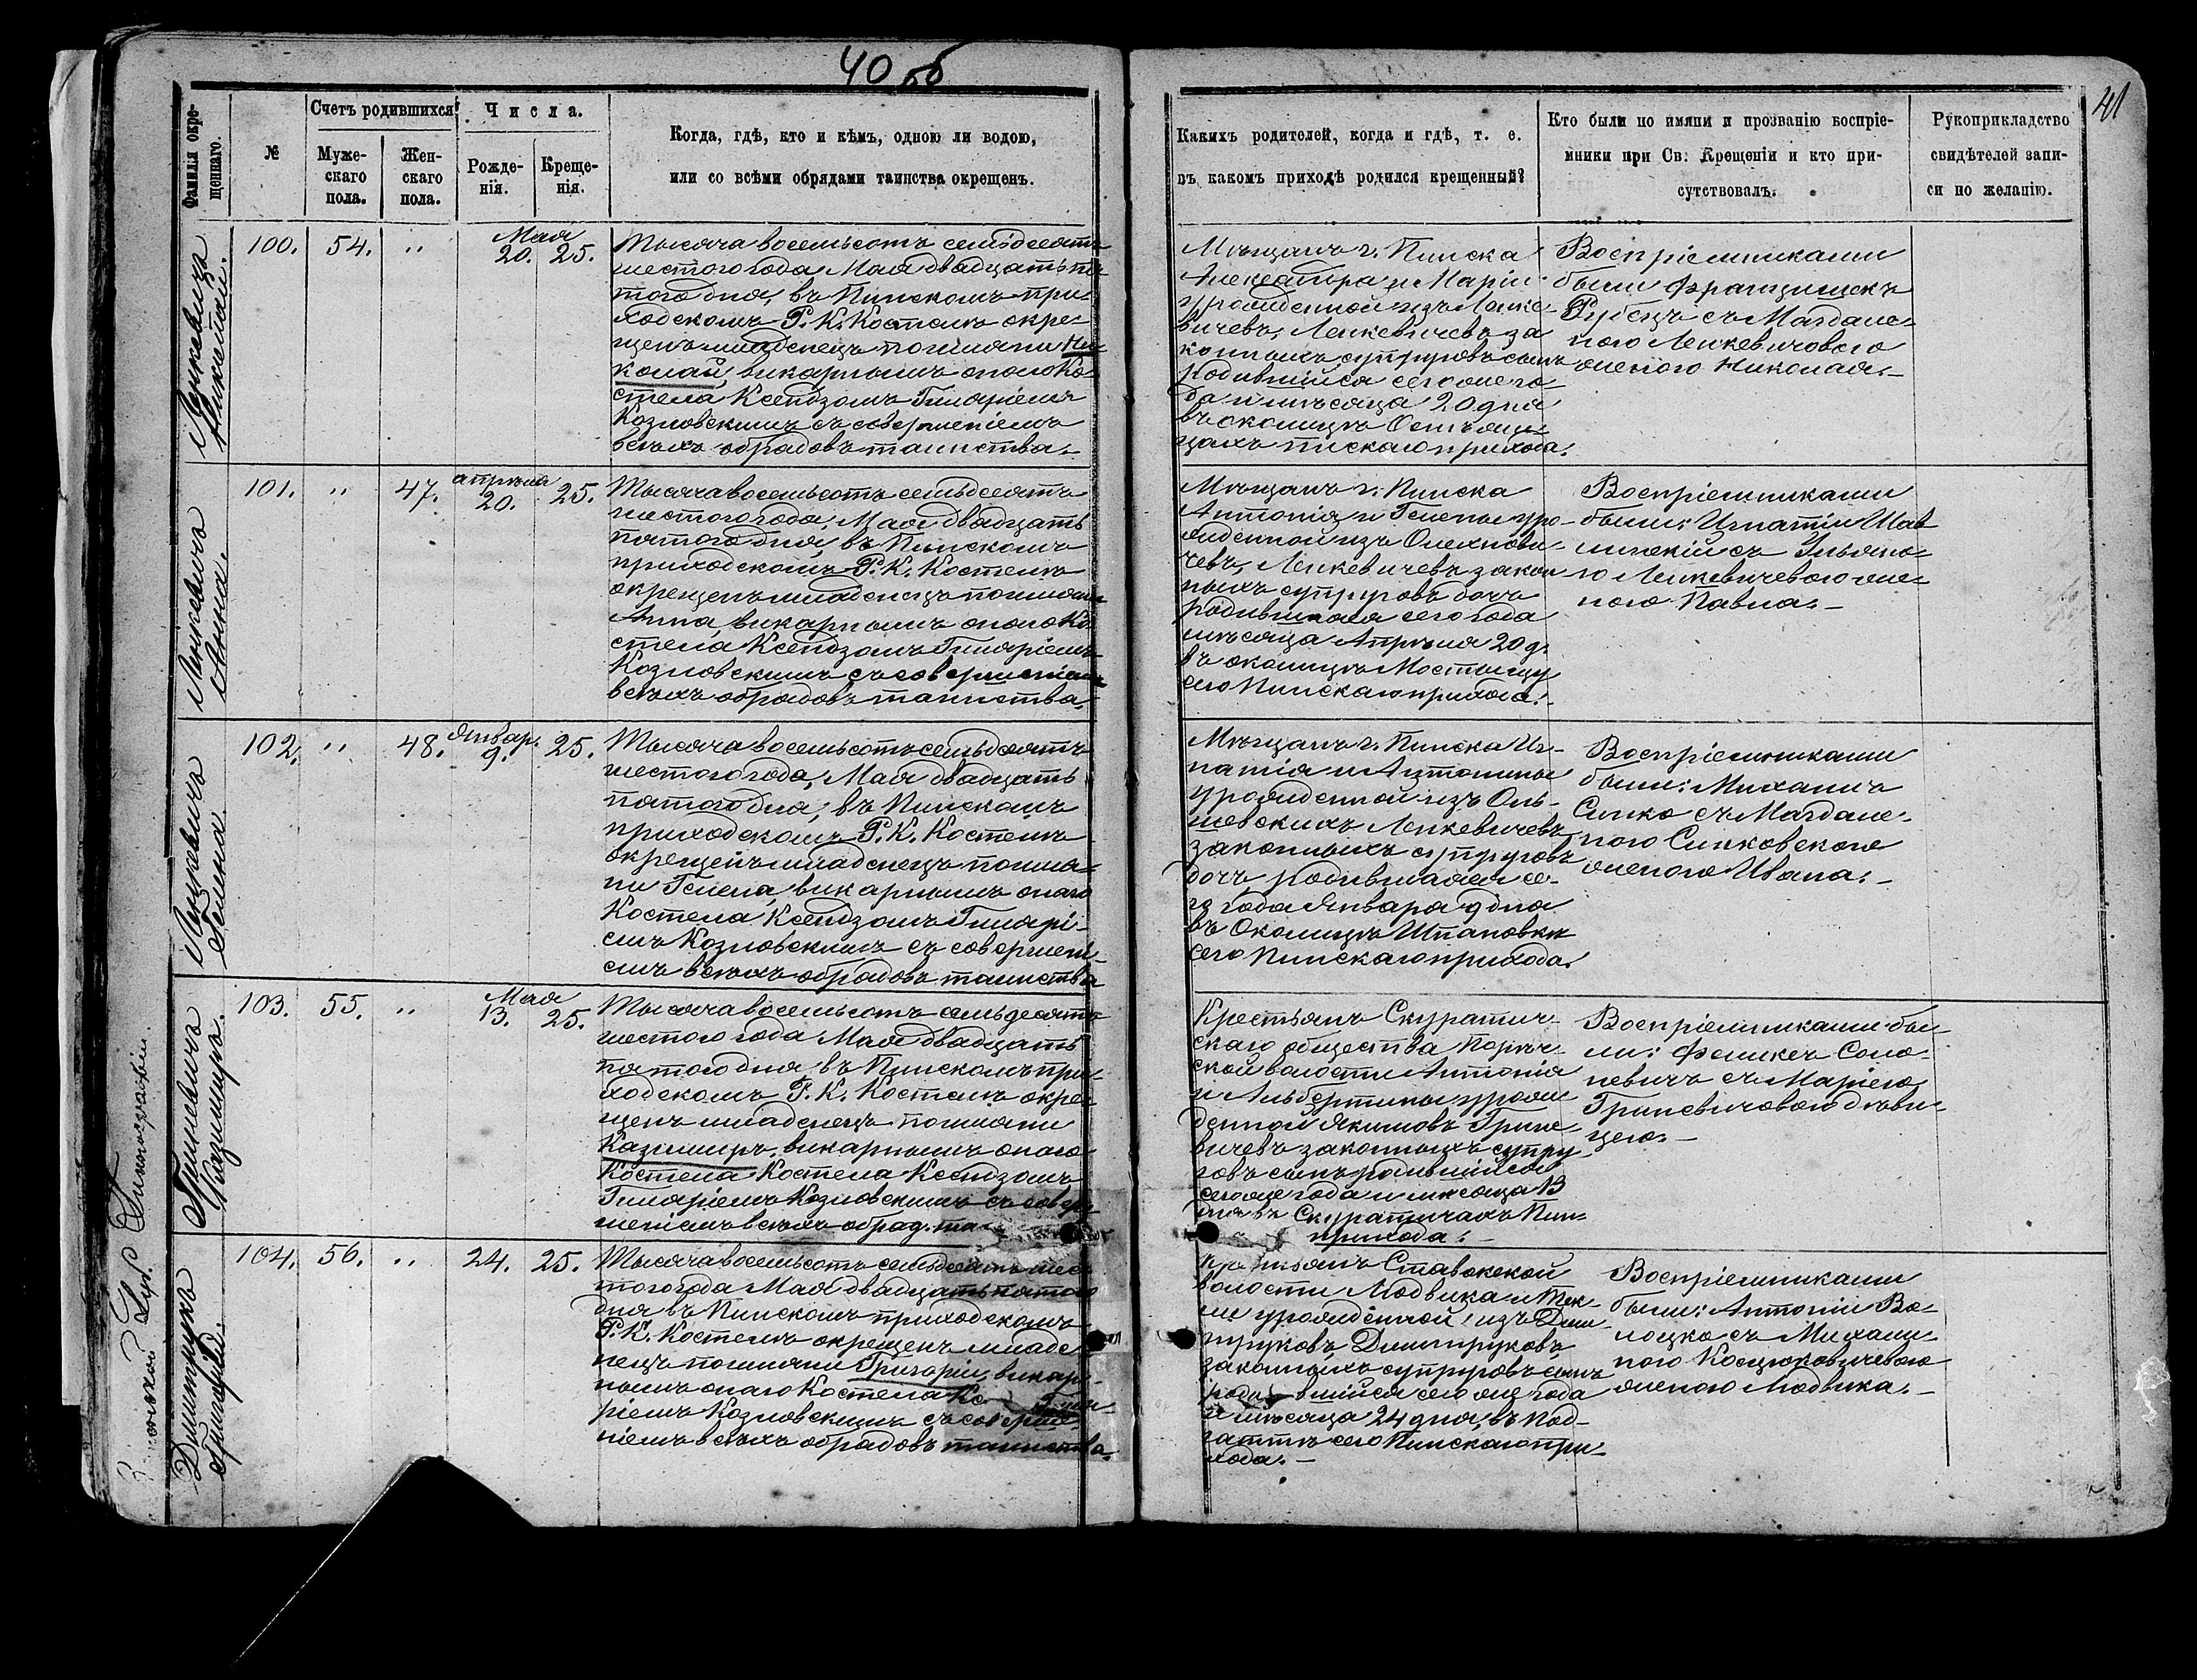 40 об
41
Фамилія окре-
щеннаго.
№
Счетъ родившихся
Муже-
скаго
пола.
Жен-
скаго
пола.
Числа.
Рожде-
нія.
Креще-
нія.
Когда, гдѣ, кто и кѣмъ, одною ли водою,
или со всѣми обрядами таинства окрещенъ.
Какихъ родителей, когда и гдѣ, т. е.
въ какомъ приходѣ родился крещенный?
Кто были по имяни и прозванію воспріе-
мники при Св: Крещеніи и кто при-
сутствовалъ.
Рукоприкладство
свидѣтелей запи-
си по желанію.
Ленкевичъ
Николай.
100. 54. " Мая
20. 25.
Тысяча восемьсотъ семьдесятъ
шестого года, Мая двадцать пя-
того дня, въ Пинскомъ при-
ходскомъ Р. К. Костелѣ окре-
щенъ младенецъ по имяни Ни-
колай, викарнымъ оного Ко-
стела Ксендзомъ Гиляріемъ
Козловскимъ съ совершеніемъ
всѣхъ обрядовъ таинства.
Мѣщанъ г. Пинска
Александра и Маріи
урожденной изъ Ленке-
вичевъ, Ленкевичевъ за
конныхъ супруговъ сынъ
родившійся сего же го-
да и мѣсяца 20 дня
въ околицѣ
пинскаго прихода.
Воспріемниками
были Францишекъ
Рубецъ съ Магдале-
ною Ленкевичовою
женою Николая.
Ленкевичъ
Анна.
101. " 47. апрѣля
20. 25.
Тысяча восемьсотъ семьдесятъ
шестого года, Мая двадцать
пятого дня, въ Пинскомъ
приходскомъ Р. К. Костелѣ
окрещенъ младенецъ по имяни
Анна, викарнымъ оного Ко-
стела Ксендзомъ Гиляріемъ
Козловскимъ съ совершеніемъ
всѣхъ обрядовъ таинства.
Мѣщанъ г. Пинска
Антонія и Гелены уро-
жденной изъ Олехнови-
чевъ, Ленкевичевъ закон
ныхъ супруговъ дочь
родившаяся сего года
мѣсяца Апрѣля 20 д.
въ околицѣ Мостыщу
сего Пинскаго прихода.
Воспріемниками
были: Игнатій
съ Ульяно-
ю Ленкевичевою же-
ною Павла.
Ленкевичъ
Гелена
102. " 48. Январ.
9. 25.
Тысяча восемьсотъ семьдесятъ
шестого года, Мая двадцать
пятого дня, въ Пинскомъ
приходскомъ Р. К. Костелѣ
окрещенъ младенецъ по имя-
ни Гелена, викарнымъ оного
Костела Ксендзомъ Гиларі-
емъ Козловскимъ съ совершені-
емъ всѣхъ обрядовъ таинства
Мѣщанъ г. Пинска Иг-
натія и Антонины
урожденной изъ Оль-
шевскихъ Ленкевичевъ
законныхъ супруговъ
дочь родившаяся се-
го года Января 9 дня
въ Околицѣ Шпановки
сего Пинскаго прихода.
Воспріемниками
были: Михаилъ
Синко съ Магдале-
ною Синковскою
женою Ивана.
Гриневичъ
Казимиръ.
103. 55. " Мая
13. 25.
Тысяча восемьсотъ семьдесятъ
шестого года Мая двадцать
пятого дня, въ Пинскомъ при-
ходскомъ Р. К. Костелѣ окре-
щенъ младенецъ по имяни
Казимиръ, викарнымъ оного
Костела Костела Ксендзомъ
Гиляріемъ Козловскимъ съ совер-
шеніемъ всѣхъ обряд. та
Крестьянъ Скуратич-
скаго общества Порѣч-
ской волости Антонія
и Альбертины урож-
денной Якимовъ Грине
вичевъ законныхъ супру
говъ сынъ родившійся
сего же года и мѣсяца 13
дня въ Скуратичахъ Пин-
прихода.
Воспріемниками бы-
ли: Феликсъ Соло-
невичъ съ Маріею
Гриневичовою дѣви-
цею.
Димитрукъ
Григорій.
104. 56. " 24. 25.
Тысяча восемьсотъ семьдесятъ шес
того года Мая двадцать пятого
дня въ Пинскомъ приходскомъ
Р. К. Костелѣ окрещенъ младе
нецъ по имяни Григорій, викар-
нымъ оного Костела
ріемъ Козловскимъ съ соверше-
ніемъ всѣхъ обрядовъ таинства.
Крестьянъ Ставокской
волости Людвика и Тек-
ли урожденной изъ Дми-
труковъ Димитруковъ
законныхъ супруговъ сынъ
родившійся сего же года
и мѣсяца 24 дня, въ Под-
гатьѣ сего Пинскаго при-
хода.
Воспріемниками
были: Антоній Во-
лоцко съ Михали-
ною Косцюковичевою
женою Людвика.